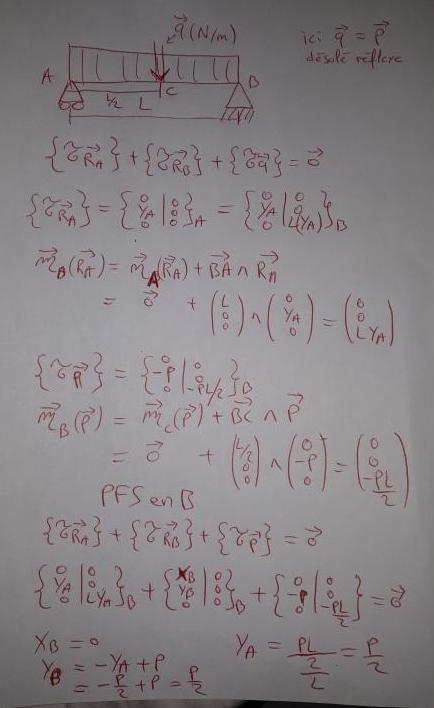 q⃗ (N/m)
ici q⃗ = p⃗
désolé réflexe
A B
L/2 C
L
{𝒯R⃗A} + {𝒯R⃗B} + {𝒯q⃗} = 0⃗
{𝒯R⃗A} = {0 YA 0 | 0 0 0}A = {0 YA 0 | 0 0 L(YA)}B
m⃗B(R⃗A) = m⃗A(R⃗A) + BA⃗ ∧ R⃗A
= 0⃗ + (L 0 0) ∧ (0 YA 0) = (0 0 LYA)
{𝒯p⃗} = {0 -P 0 | 0 0 -PL/2}B
m⃗B(p⃗) = m⃗C(p⃗) + BC⃗ ∧ P⃗
= 0⃗ + (L/2 0 0) ∧ (0 -P 0) = (0 0 -PL/2)
PFS en B
{𝒯R⃗A} + {𝒯R⃗B} + {𝒯p⃗} = 0⃗
{0 YA 0 | 0 0 LYA}B + {XB YB 0 | 0 0 0}B + {0 -P 0 | 0 0 -PL/2} = 0⃗
XB = 0
YA = PL/2/L = P/2
YB = -YA + P
= -P/2 + P = P/2